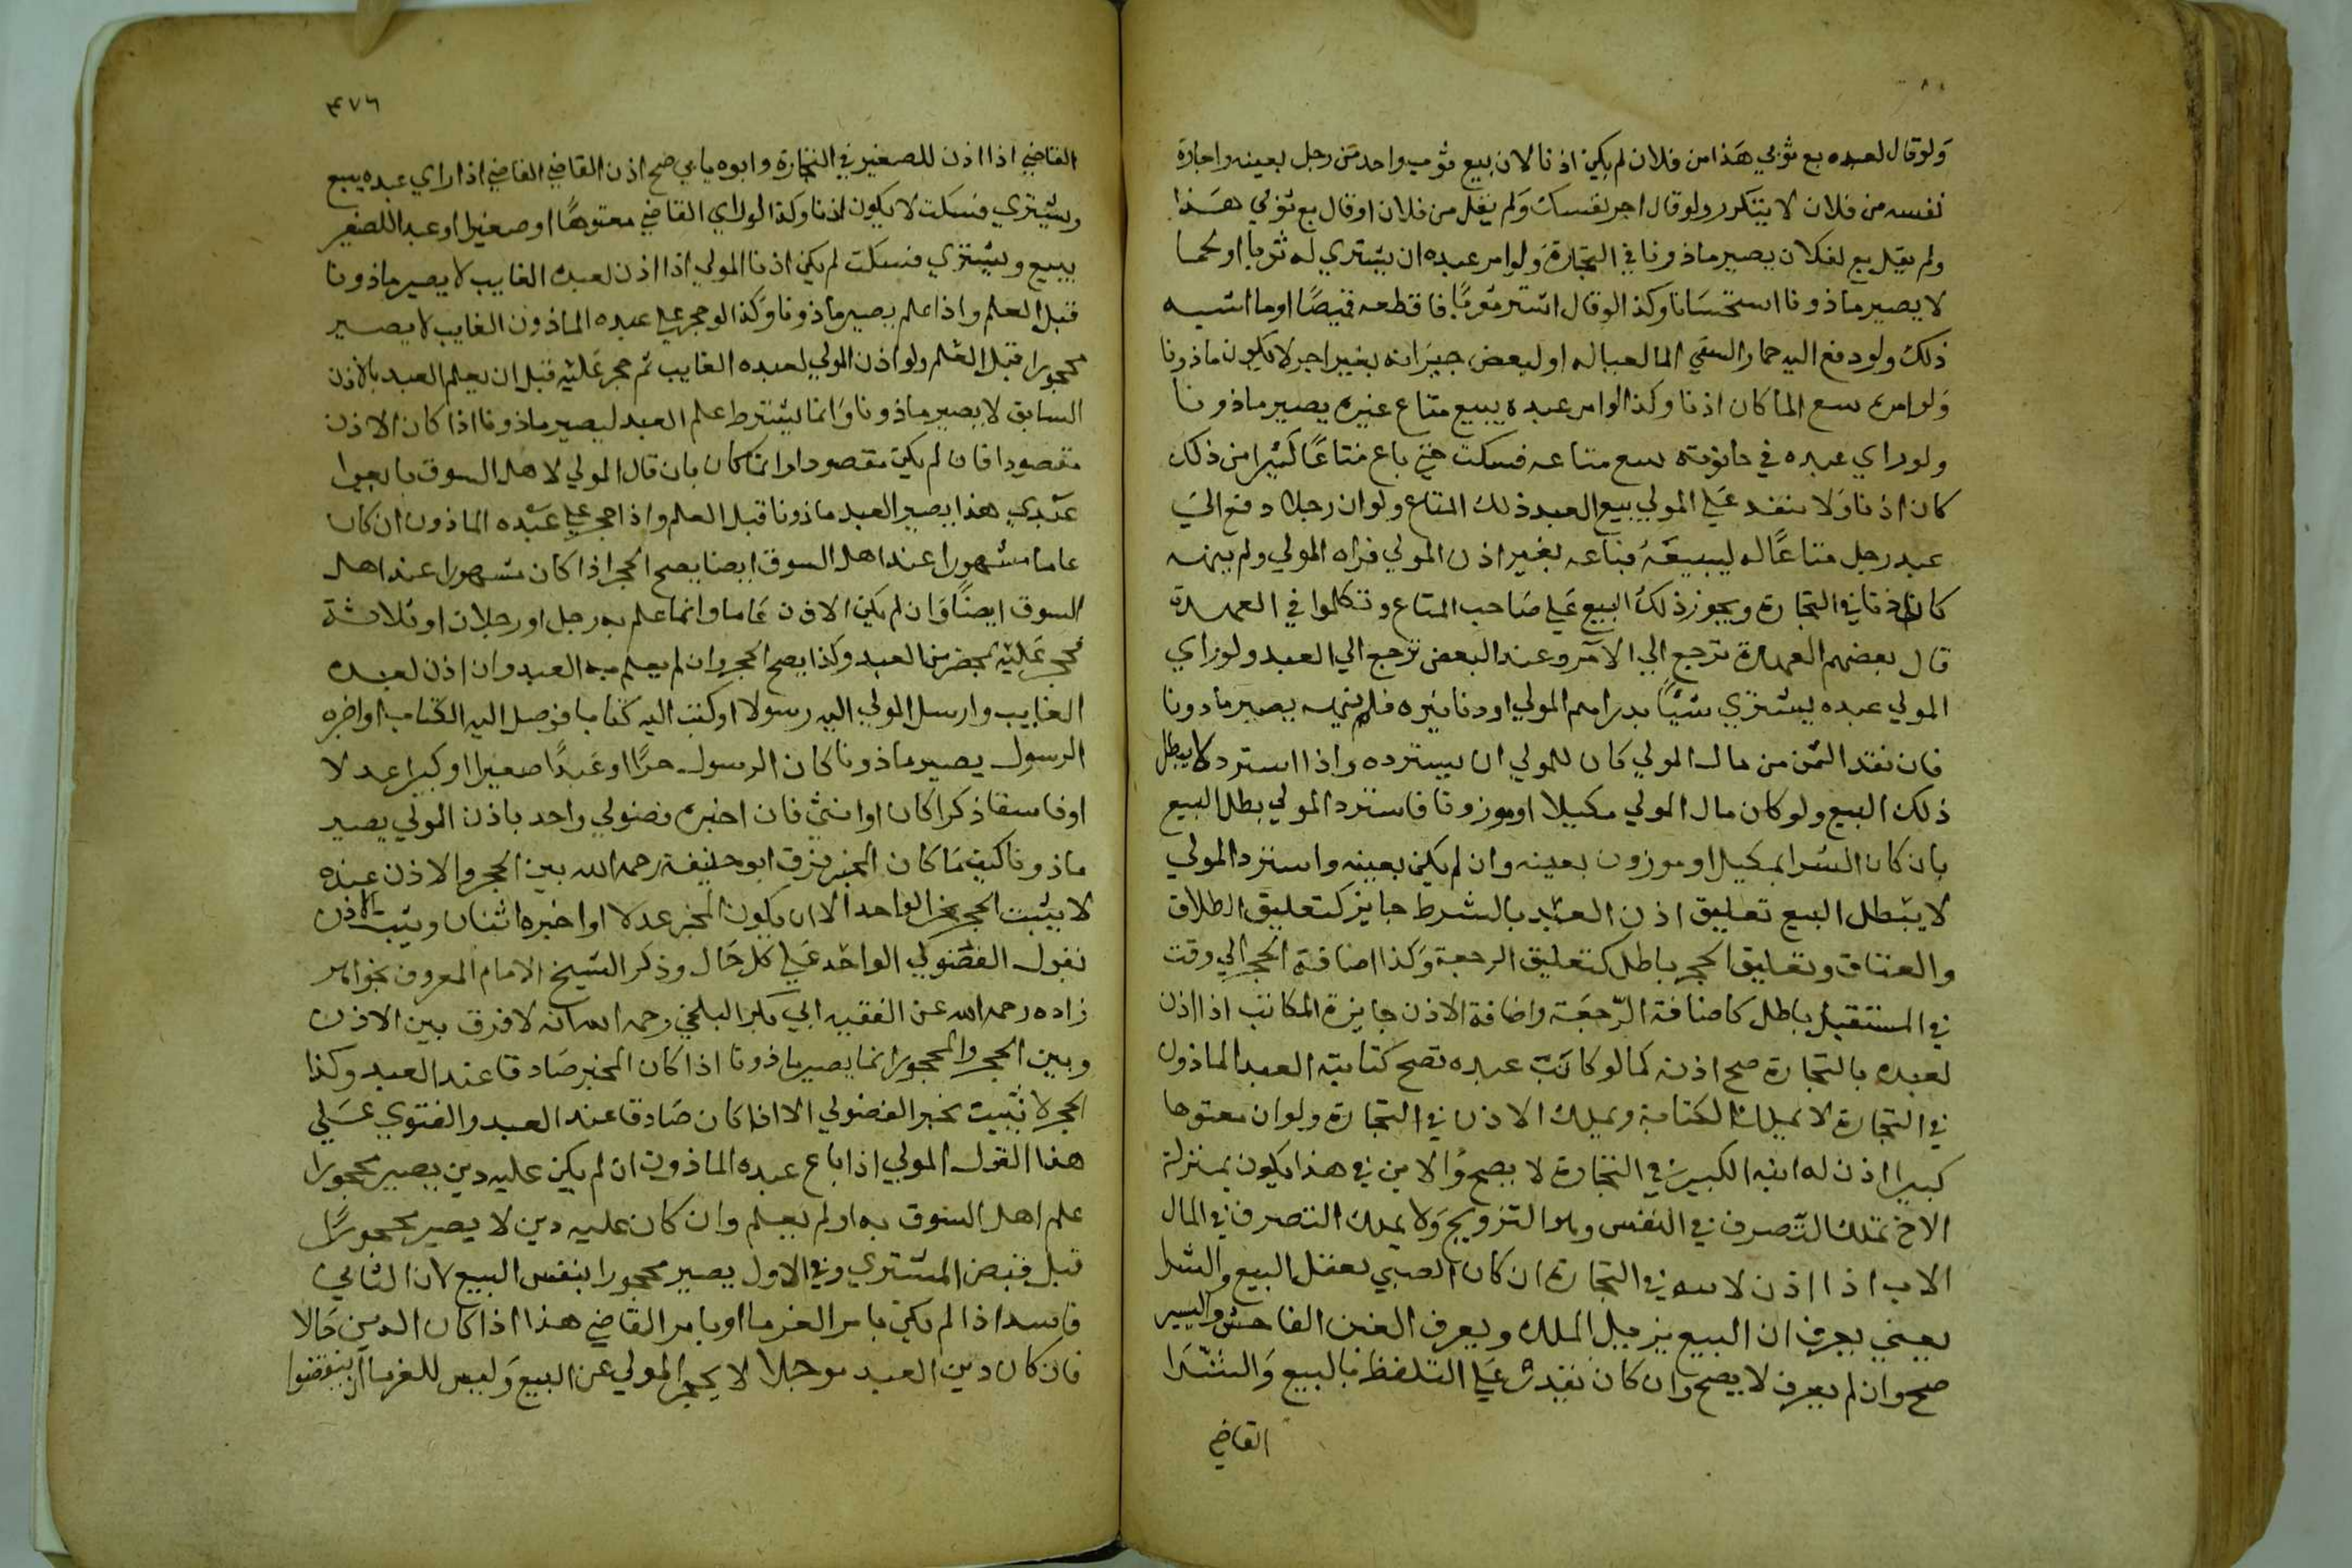 ولوقال لعبده بع ثوبي هذا من فلان لم يكن اذنا لان بيع ثوب واحد من رجل بعينه واجارة
نفسه من فلان لا يتكرر ولو قال اجر نفسك ولم يقل من فلان او قال بع ثوبي هذا
ولم يقل بع لفلان يصير ماذونا في التجارة ولو امر عبده ان يشتري له ثوبا او لحما
لا يصير ماذونا استحسانا وكذا لو قال اشتر ثوبا فاقطعه قميصا او ما اشبه
ذلك ولو دفع اليه حمارا ليسقي الما لعياله او لبعض جيرانه بغير اجر لا يكون ماذونا
ولو امره ببيع الما كان اذنا وكذا لو امر عبده يبيع متاع غيره يصير ماذونا
ولو راي عبده في حانوته يبيع متاعه فسكت حتى باع متاعا كثيرا من ذلك
كان اذنا ولا ينفذ علي المولي بيع العبد ذلك المتاع ولو ان رجلا دفع الي
عبد رجل متاعا له ليبيعه فباعه بغير اذن المولي فراه المولي ولم ينهه
كان اذنا في التجارة ويجوز ذلك البيع علي صاحب المتاع وتكلموا في العهدة
قال بعضهم العهدة ترجع الي الآمر وعند البعض ترجع الي العبد ولو راي
المولي عبده يشتري شيئا بدراهم المولي او دنانيره فلم ينهه يصير ماذونا
فان نقد الثمن من مال المولي كان للمولي ان يسترده واذا استرد لا يبطل
ذلك البيع ولو كان مال المولي مكيلا او موزونا فاسترد المولي بطل البيع
بان كان الشرا بمكيل او موزون بعينه وان لم يكن بعينه واسترد المولي
لا يبطل البيع تعليق اذن العبد بالشرط جايز كتعليق الطلاق
والعتاق وتعليق الحجر باطل كتعليق الرجعة وكذا اضافة الحجر الي وقت
في المستقبل باطل كاضافة الرجعة واضافة الاذن جايزة المكاتب اذا اذن
لعبده بالتجارة صح اذنه كما لو كاتب عبده تصح كتابته العبد الماذون
في التجارة لا يملك الكتابة ويملك الاذن في التجارة ولو ان معتوها
كبيرا اذن له ابنه الكبير في التجارة لا يصح والابن في هذا يكون بمنزلة
الاخ يملك التصرف في النفس وهو التزويج ولا يملك التصرف في المال
الاب اذا اذن لابنه في التجارة ان كان الصبي يعقل البيع والشرا
يعني يعرف ان البيع يزيل الملك ويعرف الغبن الفاحش واليسير
صح وان لم يعرف لا يصح وان كان يقدر علي التلفظ بالبيع والشرا
القاضي
٤٧٦
القاضي اذا اذن للصغير في التجارة وابوه يابي صح اذن القاضي القاضي اذا راي عبده يبيع
ويشتري فسكت لا يكون اذنا وكذا لو راي القاضي معتوها او صغيرا او عبدا للصغير
يبيع ويشتري فسكت لم يكن اذنا المولي اذا اذن لعبده الغايب لا يصير ماذونا
قبل العلم واذا علم يصير ماذونا وكذا لو حجر علي عبده الماذون الغايب لا يصير
محجورا قبل العلم ولو اذن المولي لعبده الغايب ثم حجر عليه قبل ان يعلم العبد بالاذن
السابق لا يصير ماذونا وانما يشترط علم العبد ليصير ماذونا اذا كان الاذن
مقصودا فان لم يكن مقصودا وانما كان بان قال المولي لاهل السوق بايعوا
عبدي هذا يصير العبد ماذونا قبل العلم واذا حجر علي عبده الماذون ان كان
عاما مشهورا عند اهل السوق ايضا يصح الحجر اذا كان مشهورا عند اهل
السوق ايضا وان لم يكن الاذن عاما وانما علم به رجل او رجلان او ثلاثة
فحجر عليه بمحضر من العبد وكذا يصح الحجر وان لم يعلم به العبد وان اذن لعبده
الغايب وارسل المولي اليه رسولا او كتب اليه كتابا فوصل اليه الكتاب او اخبره
الرسول يصير ماذونا كان الرسول حرا او عبدا صغيرا او كبيرا عدلا
او فاسقا ذكرا كان او انثي فان اخبره فضولي واحد باذن المولي يصير
ماذونا كيفما كان المخبر فرق ابو حنيفة رحمه الله بين الحجر والاذن عنده
لا يثبت الحجر بخبر الواحد الا ان يكون المخبر عدلا او اخبره اثنان ويثبت الاذن
بقول الفضولي الواحد علي كل حال وذكر الشيخ الامام المعروف بخواهر
زاده رحمه الله عن الفقيه ابي بكر البلخي رحمه الله انه لا فرق بين الاذن
وبين الحجر والمحجور انما يصير ماذونا اذا كان المخبر صادقا عند العبد وكذا
الحجر لا يثبت بخبر الفضولي الا اذا كان صادقا عند العبد والفتوي علي
هذا القول المولي اذا باع عبده الماذون ان لم يكن عليه دين يصير محجورا
علم اهل السوق به او لم يعلم وان كان عليه دين لا يصير محجورا
قبل قبض المشتري وفي الاول يصير محجورا بنفس البيع لان الثاني
فاسد اذا لم يكن بامر الغرما او بامر القاضي هذا اذا كان الدين حالا
فان كان دين العبد موجلا لا يحجر المولي عن البيع وليس للغرما ان ينقضوا